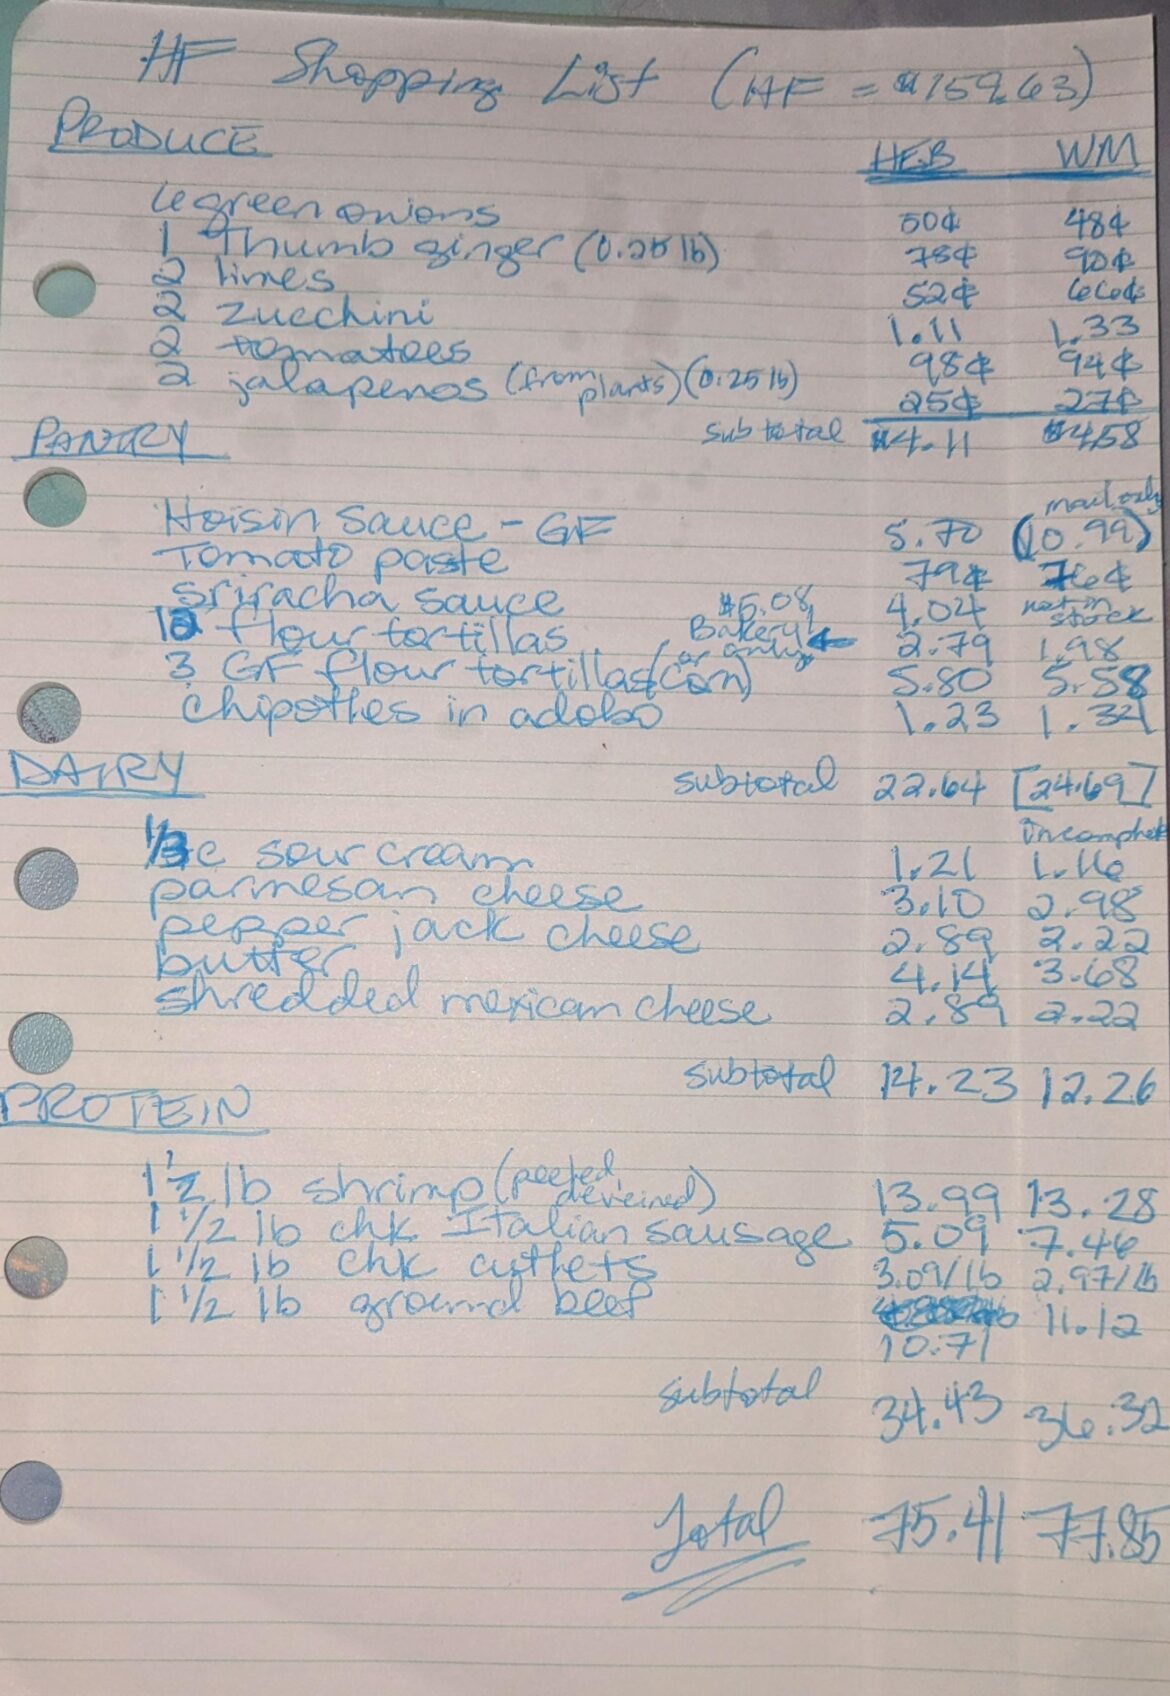 HF Shopping List (HF = $159.63)
PRODUCE HEB WM
6 green onions 50¢ 48¢
1 Thumb ginger (0.25 lb) 78¢ 90¢
2 limes 52¢ 66¢
2 zucchini 1.11 1.33
2 tomatoes 98¢ 94¢
2 jalapenos (from plants) (0.25 lb) 25¢ 27¢
subtotal $4.11 $4.58
PANTRY
mail only
Hoisin Sauce - GF 5.70 (10.99)
Tomato paste 79¢ 76¢
Sriracha sauce 4.04 not in stock
12 flour tortillas $5.08 Bakery! ← 2.79 1.98
3 GF flour tortillas (or corn) only 5.80 5.58
chipotles in adobo 1.23 1.34
DAIRY subtotal 22.64 [24.69]
incomplete
1/3 c sour cream 1.21 1.16
parmesan cheese 3.10 2.98
pepper jack cheese 2.89 2.22
butter 4.14 3.68
shredded mexican cheese 2.89 2.22
subtotal 14.23 12.26
PROTEIN
1 1/2 lb shrimp (peeled, deveined) 13.99 13.28
1 1/2 lb chk Italian sausage 5.09 7.46
1 1/2 lb chk cutlets 3.09/lb 2.97/lb
1 1/2 lb ground beef 11.12
10.71
subtotal 34.43 36.32
Total 75.41 77.85